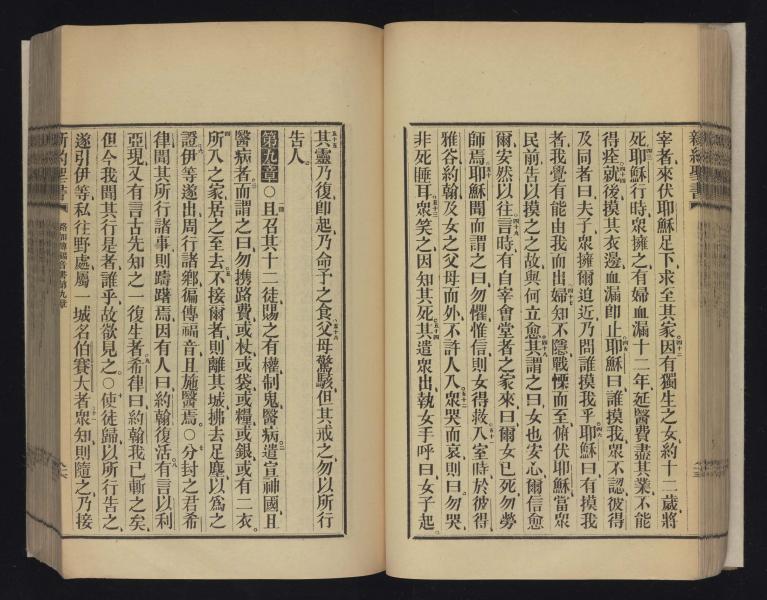 新約聖書
宰者來伏耶穌足下求至其家因有獨生之女約十二歲將
死耶穌行時衆擁之有婦血漏十二年延醫費盡其業不能
得痊就後摸其衣邊血漏卽止耶穌曰誰摸我衆不認彼得
及同者曰夫子衆擁爾迫近乃問誰摸我乎耶穌曰有摸我
者我覺有能由我而出婦知不隱戰慄而至俯伏耶穌當衆
民前告以摸之之故與何立愈其謂之曰女也安心爾信愈
爾安然以往言時有自宰會堂者之家來曰爾女已死勿勞
師焉耶穌聞而謂之曰勿懼惟信則女得救入室時於彼得
雅谷約翰及女之父母而外不許人入衆哭而哀則曰勿哭
非死睡耳衆笑之因知其死其遣衆出執女手呼曰女子起
其靈乃復卽起乃命予之食父母驚駭但其戒之勿以所行
告人
第九章○且召其十二徒賜之有權制鬼醫病遣宣神國且
醫病者而謂之曰勿携路費或杖或袋或糧或銀或有二衣
所入之家居之至去不接爾者則離其城拂去足塵以爲之
證伊等遂出周行諸鄉徧傳福音且施醫焉○分封之君希
律聞其所行諸事則躊躇焉因有人曰約翰復活有言以利
亞現又有言古先知之一復生者希律曰約翰我已斬之矣
但今我聞其行是者誰乎故欲見之○使徒歸以所行告之
遂引伊等私往野處屬一城名伯賽大者衆知則隨之乃接
新約聖書
路加傳福音書第九章